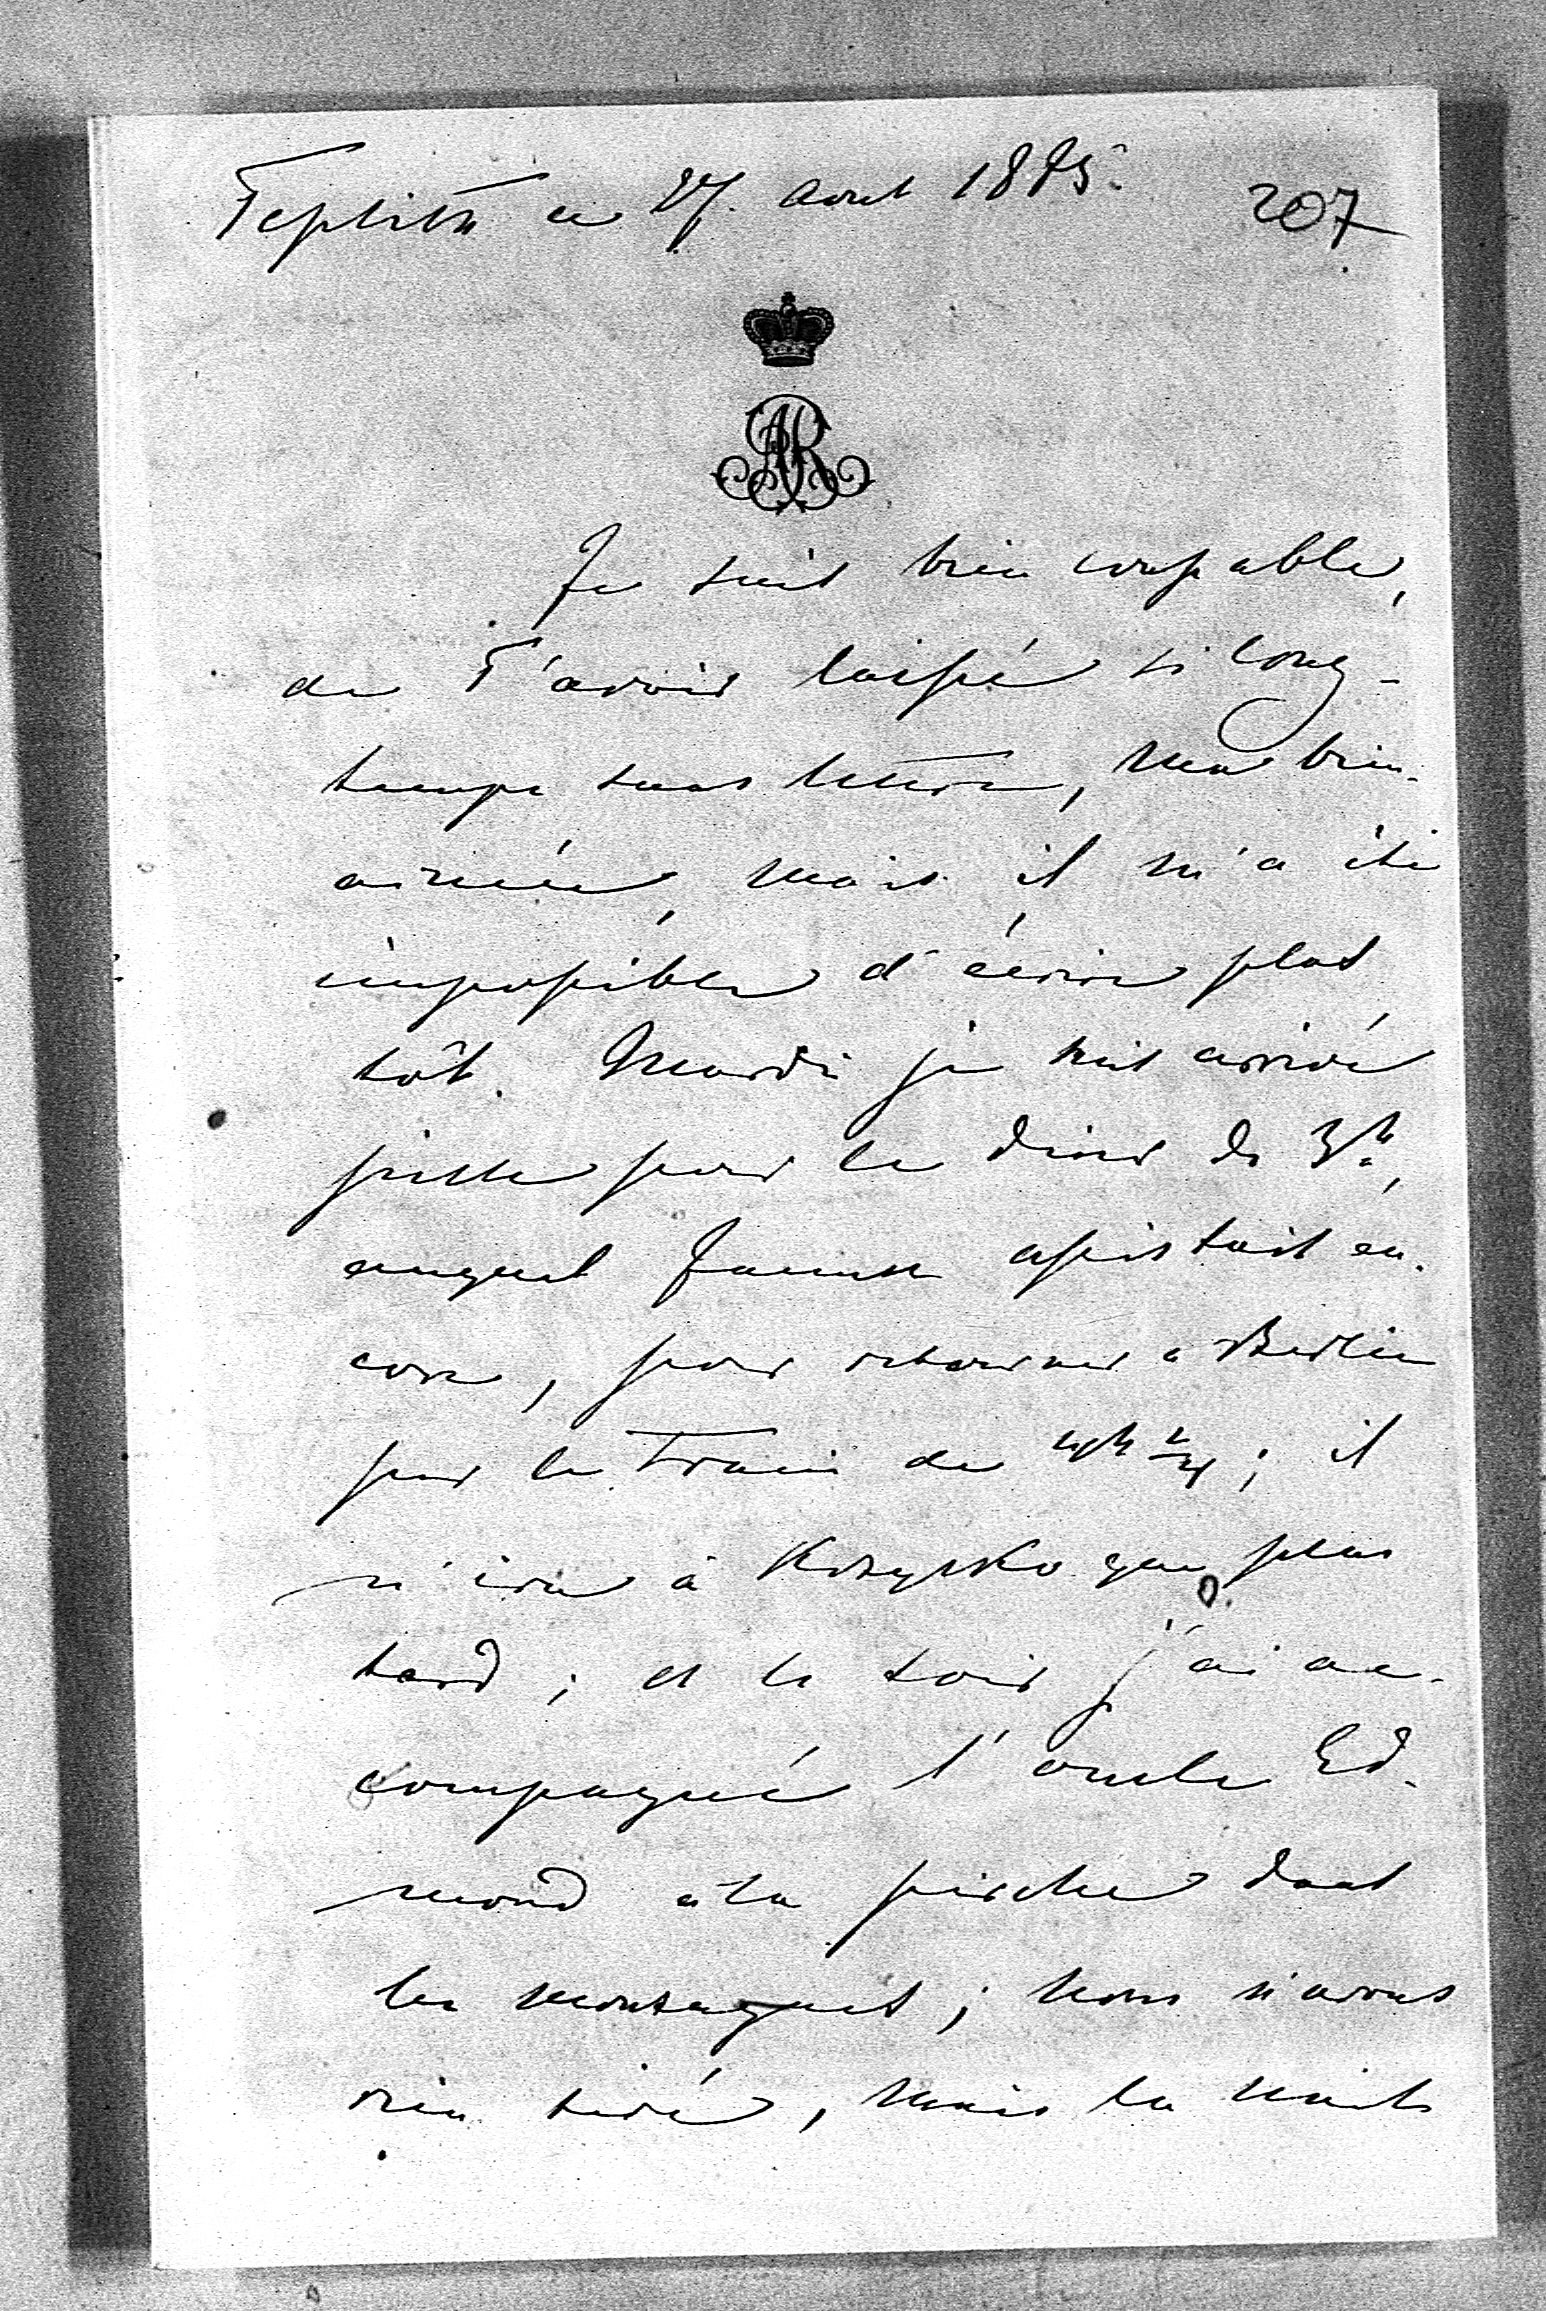 Teplitz ce 27. Aout 1885.
207
AR
Je suis bien coupable,
de T'avoir laissé si long-
temps sans lettre, Ma bien-
aimée, mais il m'a été
impossible d'écrire plus
tôt. Mardi je suis arrivé
juste pour le diner de 3h,
auquel assistait en-
core, pour retourner a Berlin
par le Train de 4h ; il
n'ira à que plus
tard ; et le soir j'ai ac-
compagné l'oncle Ed-
mond à la pirche dans
les montagnes ; nous n'avons
rien tiré, mais la nuit